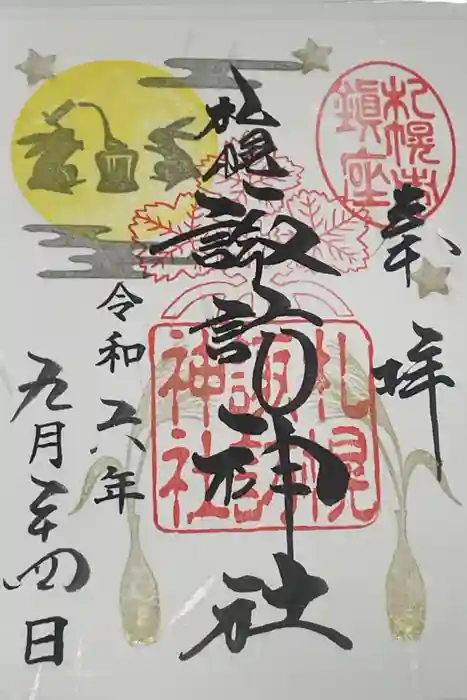 奉拝
札幌鎮座
札幌諏訪神社
札幌諏訪神社
令和六年
九月二十四日